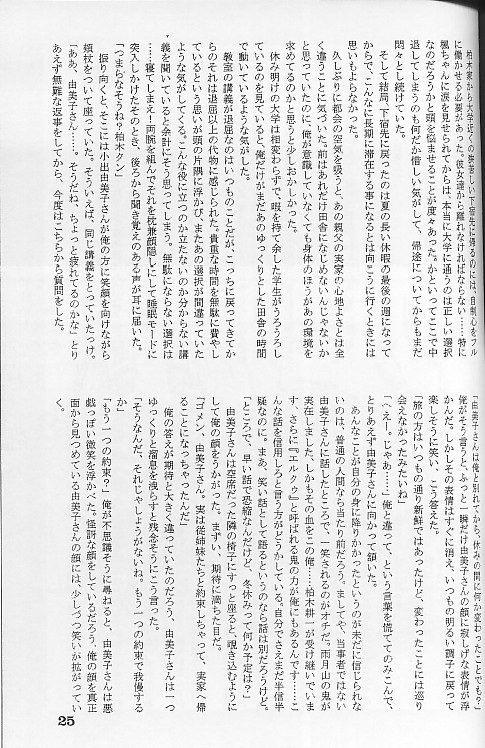 柏木家から大学近くの狭苦しい下宿先に帰るのには、自制心をフル
に働かせる必要があった。彼女達から離れなければならない……特に
楓ちゃんに涙を見せられてからは、本当に大学に通うのは正しい選択
なのだろうかと頭を悩ませることが度々あった。かといってここで中
退してしまうのも何だか惜しい気がして、帰途についてからもまだ
悶々とし続けていた。
そして結局、下宿先に戻ったのは夏の長い休暇の最後の週になって
からで、こんなに長期に滞在する事になるとは向こうに行くときには
思いもよらなかった。
久しぶりに都会の空気を吸うと、あの親父の実家の心地よさとは全
く違うことに気づいた。前はあれだけ田舎になじめないんじゃないか
と思っていたのに、俺が意識していなくても身体のほうがあの環境を
求めてるのかと思うと少しおかしかった。
休み明けの大学は相変わらずで、暇を持て余した学生がうろうろし
ているのを見ていると、俺だけがまだあのゆっくりとした田舎の時間
で動いているような気がした。
教室の講義が退屈なのはいつものことだが、こっちに戻ってきてか
らのそれは退屈以上の代物に感じられた。貴重な時間を無駄に費やし
ているという思いが頭の片隅に浮かび、またあの選択が間違っていた
ような気がしてくる。こんな役に立つのか立たないのか分からない講
義を聞いていると余計にそう思ってしまう。無駄にならない選択は
……寝てしまえ！両腕を組んでそれを枕兼顔隠しにして睡眠モードに
突入しかけたそのとき、後ろから聞き覚えのある声が耳に届いた。
「つまらなそうね？柏木クン」
振り向くと、そこには小出由美子さんが俺の方に笑顔を向けながら
頬杖をついて座っていた。そういえば、同じ講義をとっていたっけ。
「ああ、由美子さん……。そうだね、ちょっと疲れてるのかな」とり
あえず無難な返事をしてから、今度はこちらから質問をした。
「由美子さんは俺と別れてから、休みの間に何か変わったことでも？」
俺がそう言うと、ふっと一瞬だけ由美子さんの顔に寂しげな表情が浮
かんだ。しかしその表情はすぐに消え、いつもの明るい調子に戻って
楽しそうに笑い、こう答えた。
「旅の方はいつもの通り新鮮ではあったけど、変わったことには巡り
会えなかったみたいね」
「へぇー。じゃあ……」俺と違って、という言葉を慌ててのみこんで、
とりあえず由美子さんに向かって頷いた。
あんなことが自分の身に降りかかったというのが未だに信じられな
いのは、普通の人間なら当たり前だろう。ましてや、当事者ではない
由美子さんに話したところで、一笑されるのがオチだ。『雨月山の鬼が
実在しました。しかもその血をこの俺……柏木耕一が受け継いでいま
す、さらに『エルクゥ』と呼ばれる鬼の力が俺にもあるんです……こ
んな話を信用しろと言う方がどうかしている。自分でさえまだ半信半
疑なのに。まあ、笑い話として語るというのなら話は別だろうけど。
「ところで、早い話で恐縮なんだけど、冬休みって何か予定は？」
由美子さんは空席だった隣の椅子にすっと座ると、覗き込むように
して俺の顔をうかがった。まずい、期待に満ちた目だ。
「ゴメン、由美子さん。実は従姉妹たちと約束しちゃって、実家へ帰
ることになっちゃったんだ」
俺の答えが期待と大きく違っていたのだろう、由美子さんは一つ
ゆっくりと溜息を洩らすと残念そうにこう言った。
「そうなんだ、それじゃしょうがないね。もう一つの約束で我慢する
か」
「もう一つの約束？」俺が不思議そうに尋ねると、由美子さんは悪
戯っぽい微笑を浮かべた。怪訝な顔をしているだろう、俺の顔を真正
面から見つめている由美子さんの顔には、少しづつ笑いが拡がってい
く。
25